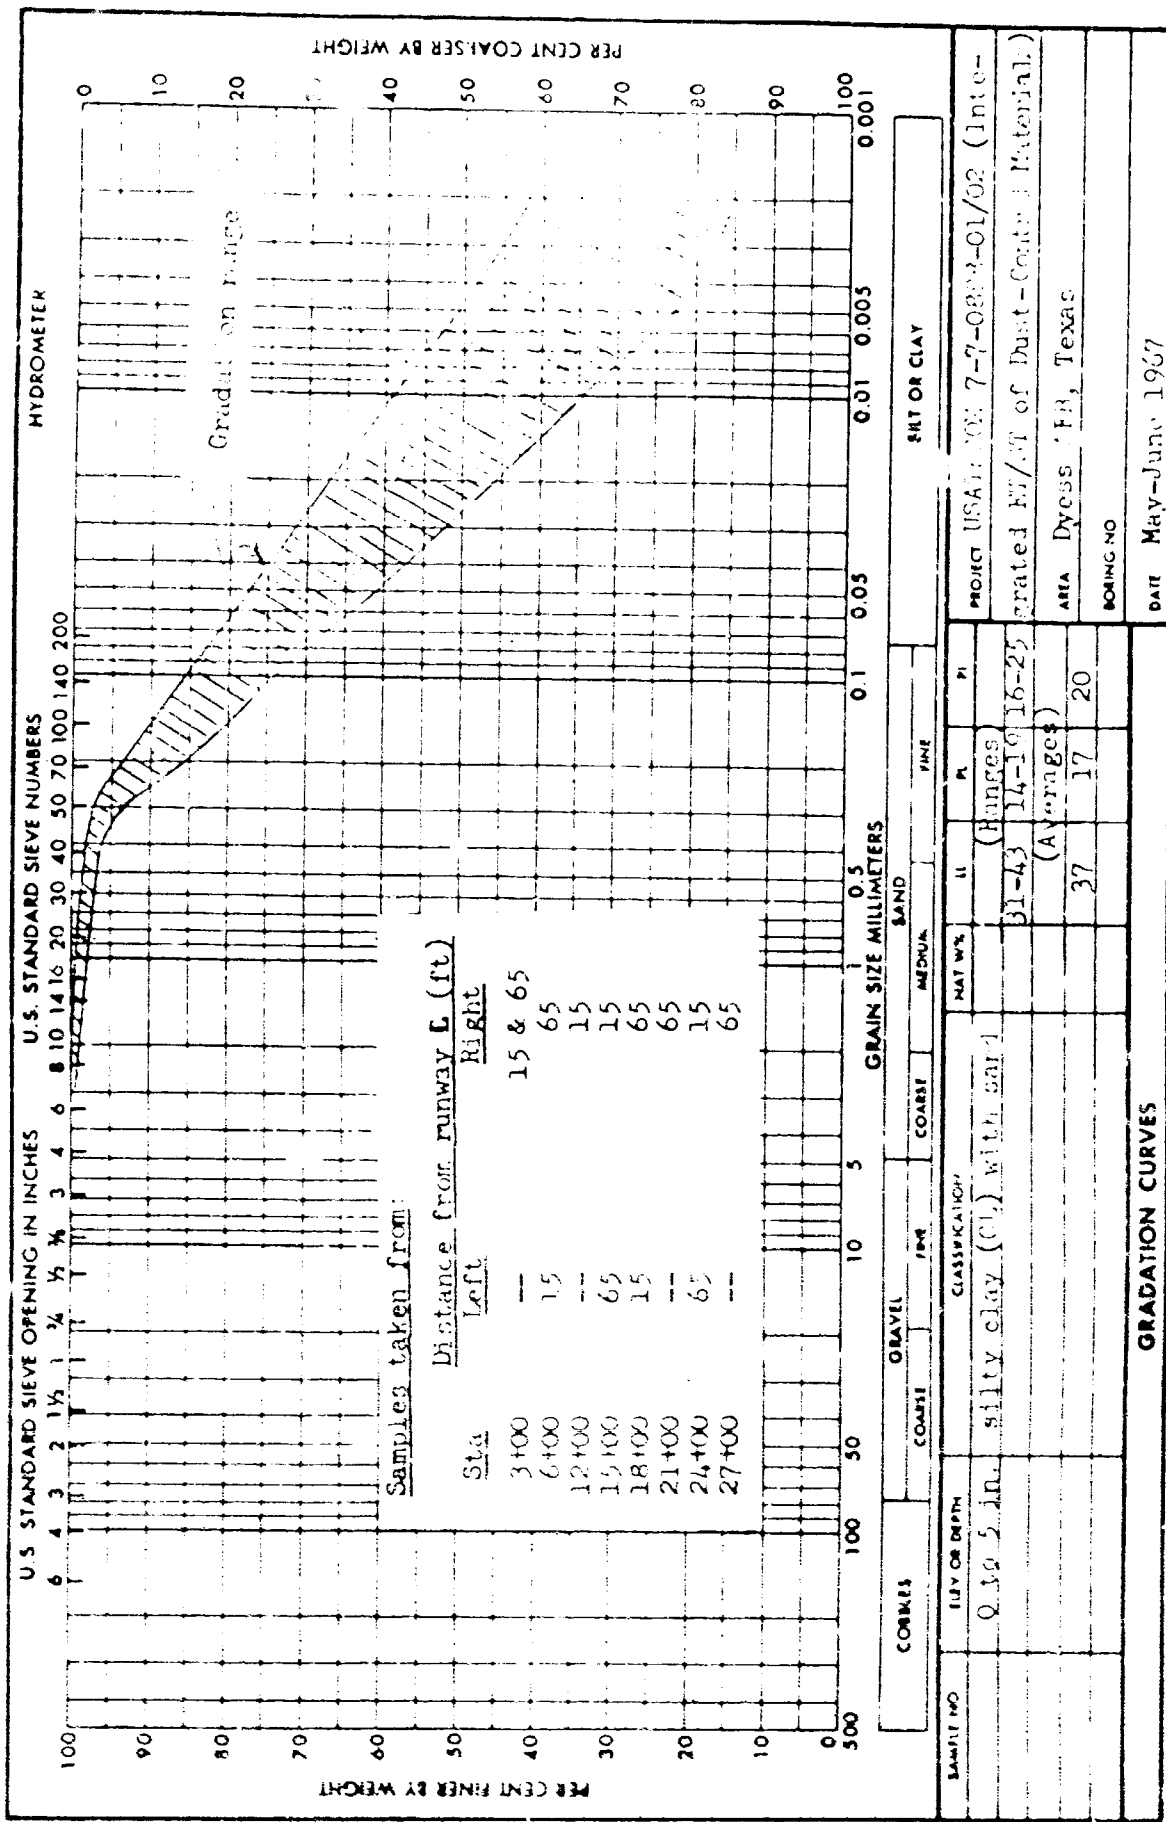 U.S. STANDARD SIEVE OPENING IN INCHES
U.S. STANDARD SIEVE NUMBERS
HYDROMETER
6 4 3 2 1½ 1 ¾ ½ ⅜ 3 4 6 8 10 14 16 20 30 40 50 70 100 140 200
PER CENT FINER BY WEIGHT
100
90
80
70
60
50
40
30
20
10
0
PER CENT COARSER BY WEIGHT
0
10
20
40
50
60
70
80
90
100
range
Samples taken from:
Distance from runway ℄ (ft)
Sta Left Right
3+00 -- 15 & 65
6+00 15 65
12+00 -- 15
15+00 65 15
18+00 15 65
21+00 -- 65
24+00 65 15
27+00 -- 65
500 100 50 10 5 1 0.5 0.1 0.05 0.01 0.005 0.001
GRAIN SIZE MILLIMETERS
COBBLES
GRAVEL
SAND
SILT OR CLAY
COARSE FINE COARSE MEDIUM FINE
SAMPLE NO ELEV OR DEPTH CLASSIFICATION NAT W% LL PL PI
0 to 5 in. silty clay (CL) with sand
(Ranges)
31-43 14-19 16-25
(Averages)
37 17 20
PROJECT 7-7- -01/02 (Inte-
grated ET/ST of Dust-Control Material)
AREA Dyess AFB, Texas
BORING NO
GRADATION CURVES
DATE May-June 1967